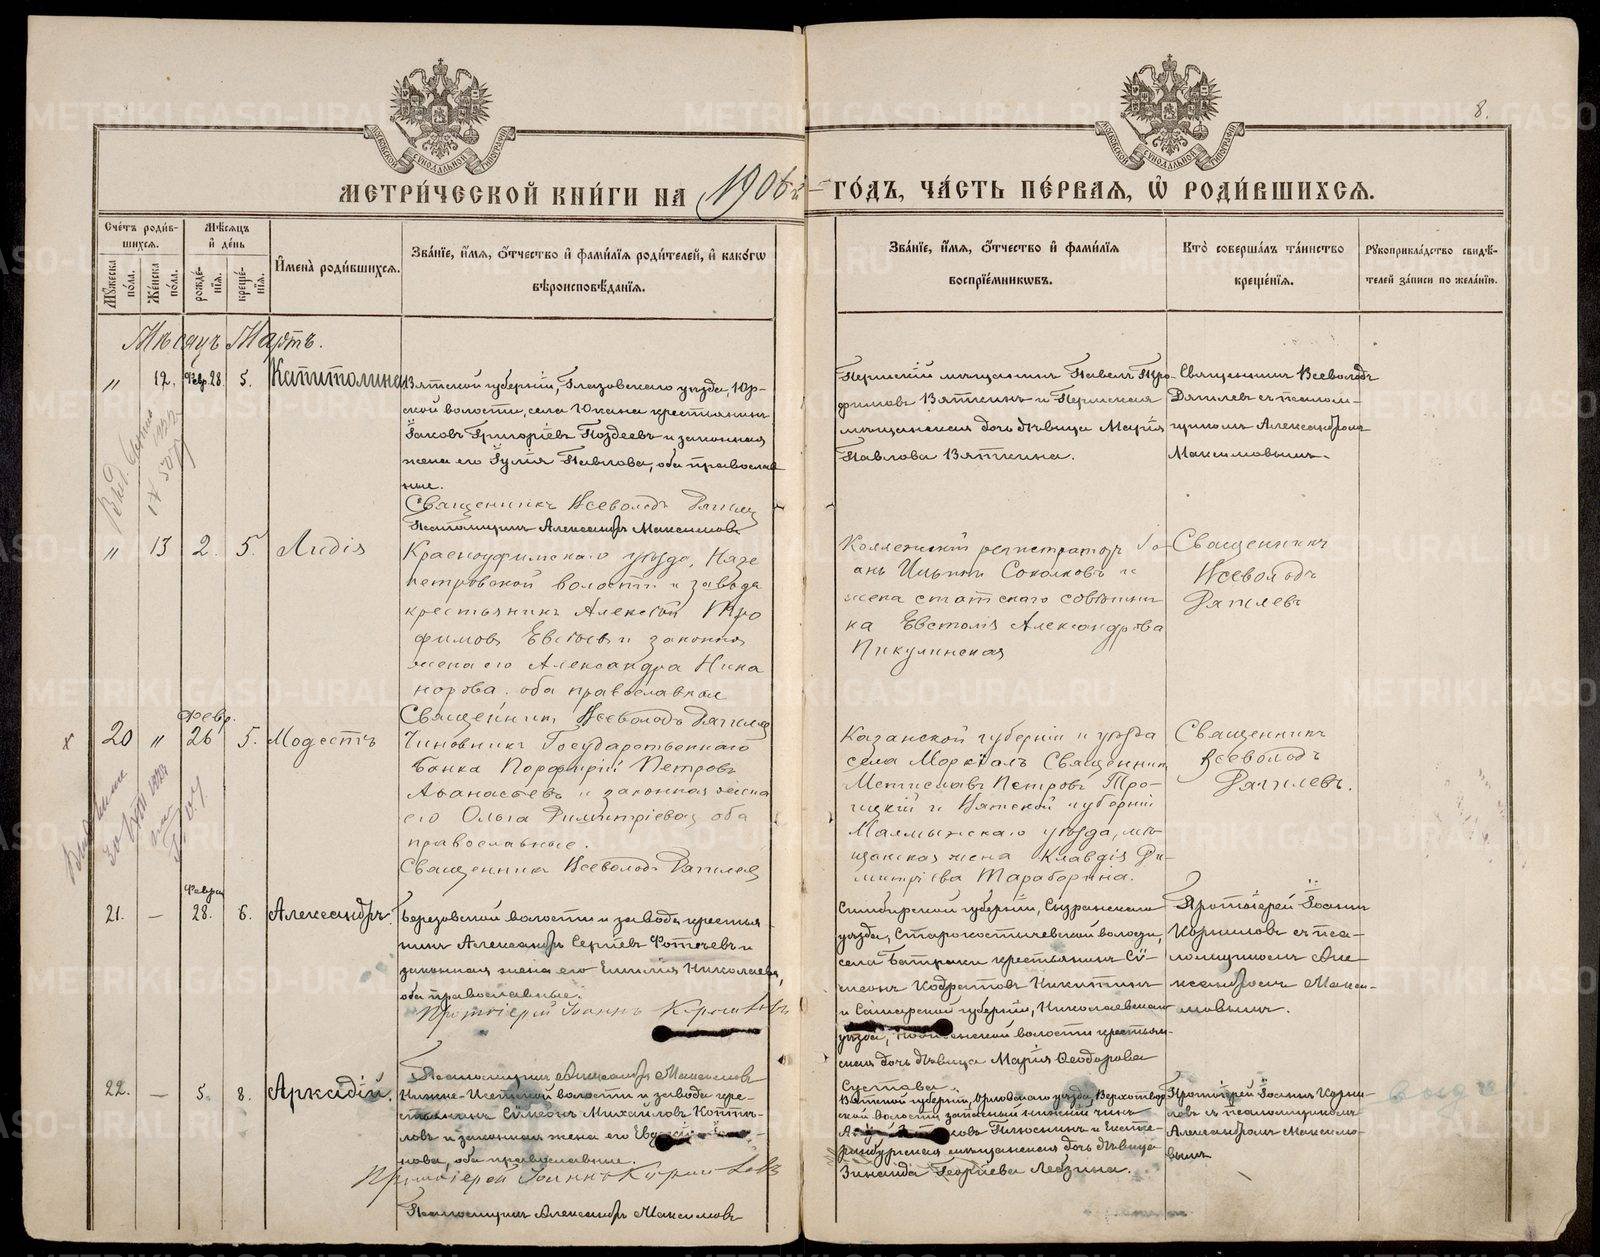 8.
МЕТРИ́ЧЕСКОЙ КНИ́ГИ НА 1906-й ГО́ДЪ, ЧА́СТЬ ПЕ́РВАЯ, Ѡ РОДИ́ВШИХСЯ.
Сче́тъ роди́вшихся.
Му́жеска по́ла.
Же́нска по́ла.
Мѣ́сяцъ и҆ де́нь
рожде́нїя.
креще́нїя.
И҆мена̀ роди́вшихся.
Зва́нїе, и҆́мя, ѻ҆́тчество и҆ фами́лїя роди́телей, и҆ како́гѡ
вѣроисповѣ́данїя.
Зва́нїе, и҆́мя, ѻ҆́тчество и҆ фами́лїя
воспрїе́мникѡвъ.
Кто̀ соверша́лъ та́инство
креще́нїя.
Рꙋкоприкла́дство свидѣ́-
телей за́писи по жела́нїю.
Мѣсяцъ Мартъ.
" 12. Февр. 28. 5. Капитолина
Вятской губерніи, Глазовскаго уѣзда, Юр-
ской волости, села Юкана крестьянинъ
Іаковъ Григоріевъ Поздеевъ и законная
жена его Іулія Павлова, оба православ
ные.
Священникъ Всеволодъ Дягилев
Псаломщикъ Александръ Максимовъ
Пермскій мѣщанинъ Павелъ Тро-
фимовъ Вяткинъ и Пермская
мѣщанская дочь дѣвица Марія
Павлова Вяткина.
Священникъ Всеволодъ
Дягилевъ съ псалом-
щикомъ Александромъ
Максимовымъ.
" 13 2. 5. Лидія
Красноуфимскаго уѣзда, Нязе
петровской волости и завода
крестьянинъ Алексій Тро
фимовъ Евсіевъ и законная
жена его Александра Ника
норова. оба православные
Священникъ Всеволодъ Дягилев
Коллежскій регистраторъ Іо
анъ Ильинъ Соколовъ и
жена статскаго совѣтни
ка Евстолія Александрова
Пикулинская
Священникъ
Всеволодъ
Дягилевъ
Февр.
20 " 26 5. Модестъ
Чиновникъ Государственнаго
Банка Порфирій Петровъ
Аѳанасьевъ и законная жена
его Ольга Димитріева, оба
православные.
Священникъ Всеволодъ Дягилев
Казанской губерніи и уѣзда
села Моркіалъ Священникъ
Мстиславъ Петровъ Тро-
ицкій и Вятской губерніи
Малмыжскаго уѣзда, мѣ-
щанская жена Клавдія Ди-
митріева Тараборина.
Священникъ
Всеволодъ
Дягилевъ.
Февра
21. — 28. 6. Александръ.
Березовской волости и завода крестья
нинъ Александръ Сергіевъ Фотеевъ и
законная жена его Емилія Николаева,
оба православные.
Протоіерей Іоаннъ Корниловъ
Псаломщикъ Александръ Максимовъ
Симбирской губерніи, Сызранскаго
уѣзда, Старокостычевской волости,
села Батраки крестьянинъ Сѵ-
меонъ Кодратовъ Никитинъ
и Самарской губерніи, Николаевскаго
уѣзда, волости крестьян-
ская дочь дѣвица Марія Ѳеодорова
Сустава.
Протоіерей Іоаннъ
Корниловъ съ пса-
ломщикомъ Але
ксандромъ Макси-
мовымъ.
22. — 5. 8. Аркадій.
Нижне-Исетской волости и завода кре-
стьянинъ Сѵмеонъ Михайловъ Котти-
ловъ и законная жена его
нова, оба православные.
Протоіерей Іоаннъ Корниловъ
Псаломщикъ Александръ Максимовъ
Вятской губерніи, Орловскаго уѣзда, Верхотвор
ской волости запасный нижній чинъ
ковъ Плюснинъ и Екате-
ринбургская мѣщанская дочь дѣвица
Зинаида Георгіева Лебзина.
Протоіерей Іоаннъ Корни-
ловъ съ псаломщикомъ
Александромъ Максимо-
вымъ